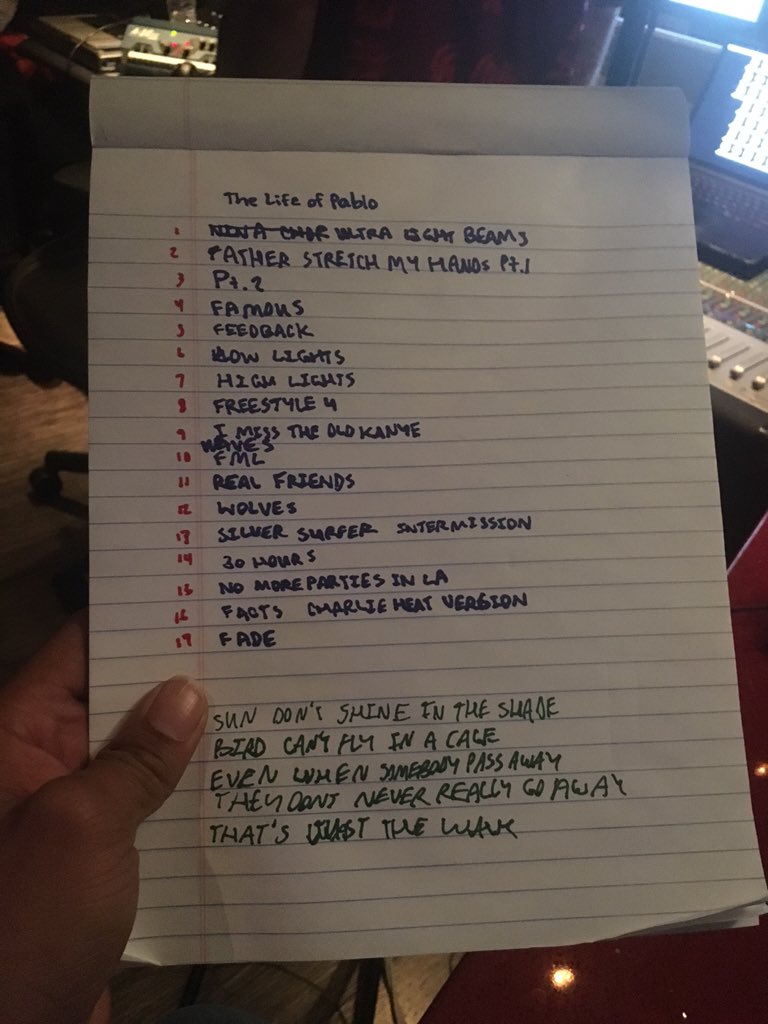 The Life of Pablo
1 ULTRA LIGHT BEAMS
2 FATHER STRETCH MY HANDS Pt.1
3 Pt.2
4 FAMOUS
5 FEEDBACK
6 LOW LIGHTS
7 HIGH LIGHTS
8 FREESTYLE 4
9 I MISS THE OLD KANYE
WAVES
10 FML
11 REAL FRIENDS
12 WOLVES
13 SILVER SURFER INTERMISSION
14 30 HOURS
15 NO MORE PARTIES IN LA
16 FACTS CHARLIE HEAT VERSION
17 FADE
SUN DON'T SHINE IN THE SHADE
BIRD CAN'T FLY IN A CAGE
EVEN WHEN SOMEBODY PASS AWAY
THEY DONT NEVER REALLY GO AWAY
THAT'S JUST THE WAVE